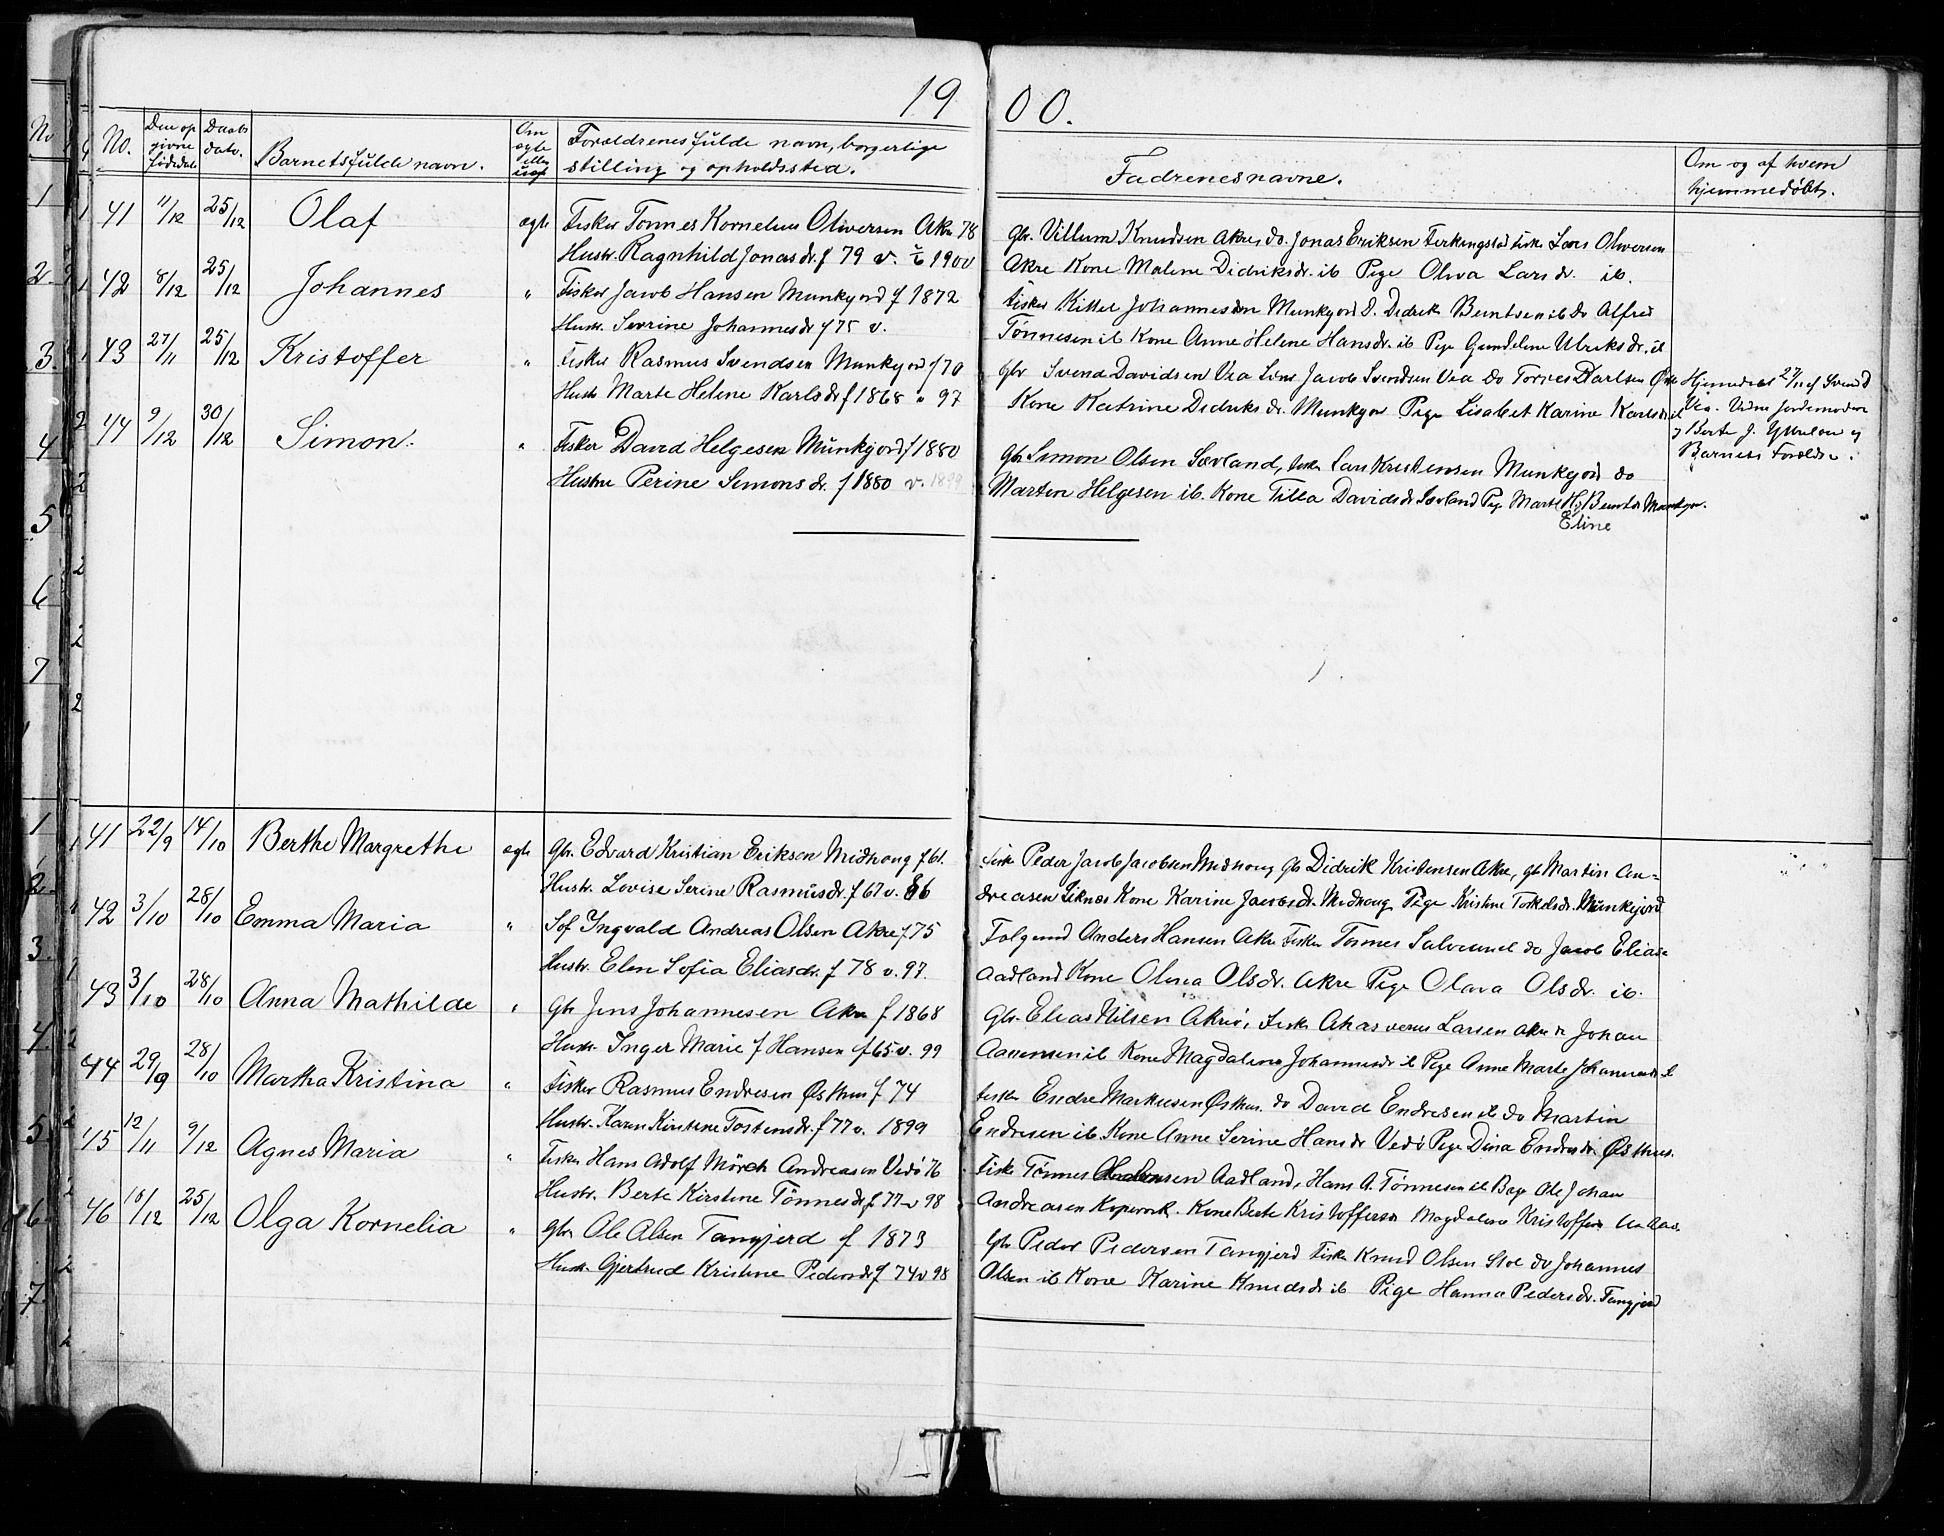 19 00.
No. Den op givne fødedato Daabs dato. Barnets fulde navn. Om ægte eller uægte Forældrenes fulde navn, borgerlige stilling og opholdssted. Fadrenes navne. Om og af hvem hjemmedøbt.
41 11/12 25/12 Olaf ægte Fisker Tønnes Kornelius Oliversen Akre 78
Hustr. Ragnhild Jonasdr. f 79 v. 1900
Gbr. Villum Knudsen Akre, do. Jonas Eriksen Ferkingstad fisk Lars Oliversen
Akre Kone Malene Didriksdr. ib Pige Oliva Larsdr. ib.
42 8/12 25/12 Johannes " Fisker Jacob Hansen Munkejord f 1872
Hustr. Serine Johannesdr f 75 v.
fisker Kittel Johannesen Munkejord D. Didrik Berntsen ib do Alfred
Tønnesen ib Kone Anne Helene Hansdr. ib Pige Gundeline Ulriksdr. ib
43 27/11 25/12 Kristoffer " fisker Rasmus Svendsen Munkejord f 70
Hustr Marte Helene Karlsdr f 1868 " 97
Gbr Svend Davidsen Vea Jacob Svendsen Vea do Torres Karlsen
Kone Katrine Didriksdr. Munkejor Pige Lisabet Karine Karlsdr ib
Hjemmedøbt 27/11 af Svend
Vea. Vidne Jordemoder
Berte J. og
Barnets Forældre.
44 9/12 30/12 Simon. " Fisker David Helgesen Munkejord f 1880
Hustru Perine Simonsdr. f 1880 v. 1899
Gbr Simon Olsen Sævland, fisker Lars Kristensen Munkejord do
Marten Helgesen ib. Kone Tilla Davidsdr Sævland Pige Marte H. Berntsdr Munkejor.
Eline
41 22/9 14/10 Berthe Margrethe ægte Gbr. Edvard Kristian Eriksen Midhaug f 61.
Hustr. Lovise Serine Rasmusdr. f 67 v. 86
fisk Peder Jacob Jacobsen Midhaug Gb Didrik Kristensen Akre, gb Martin An-
dreasen Liknes Kone Karine Jacobsdr. Midhaug Pige Kristine Torkelsdr. Munkejord
42 3/10 28/10 Emma Maria " Sof Ingvald Andreas Olsen Akre f 75
Hustr. Elen Sofia Eliasdr. f 78 v. 97.
Folgemd Anders Hansen Akre Fisker Tønnes Salvesen ib do Jacob Elias
Aadland Kone Olina Olsdr. Akre Pige Olava Olsdr. ib.
43 3/10 28/10 Anna Mathilde " Gbr Jens Johannesen Akre f 1868
Hustr. Inger Marie f Hansen f 65 v. 99
Gbr. Elias Nilsen Akre, fisk Ahasverus Larsen Akre Johan
Aanensen ib Kone Magdalena Johannesdr ib Pige Anne Marte Johannesdr ib
44 29/9 28/10 Martha Kristina " Fisker Rasmus Endresen Østhus f 74
Hustr. Karen Kirstine Tostensdr. f 77 v. 1899
fisker Endre Markusen Østhus. do David Endresen ib do Martin
Endresen ib Kone Anne Serine Hansdr Vedø Pige Dina Endresdr Østhus.
45 12/11 9/12 Agnes Maria " Fisker Hans Adolf Mørch Andreasen Vedø 76
Hustr. Berte Kirstine Tønnesdr f 77 v 98
Fisk Tønnes Aadland, Hans A. Tønnesen ib Bager Ole Johan
Andreasen Kopervik. Kone Berte Kristoffersen Magdalena Kristoffers
46 10/12 25/12 Olga Kornelia " Gbr Ole Olsen Tangjerd f 1873
Hustr. Gjertrud Kristine Pedersdr f 74 v 98
Gbr Peder Pedersen Tangjerd Fisk Knud Olsen Stoe do Johannes
Olsen ib Kone Karine Knudsdr ib Pige Hanna Pedersdr. Tangjerd